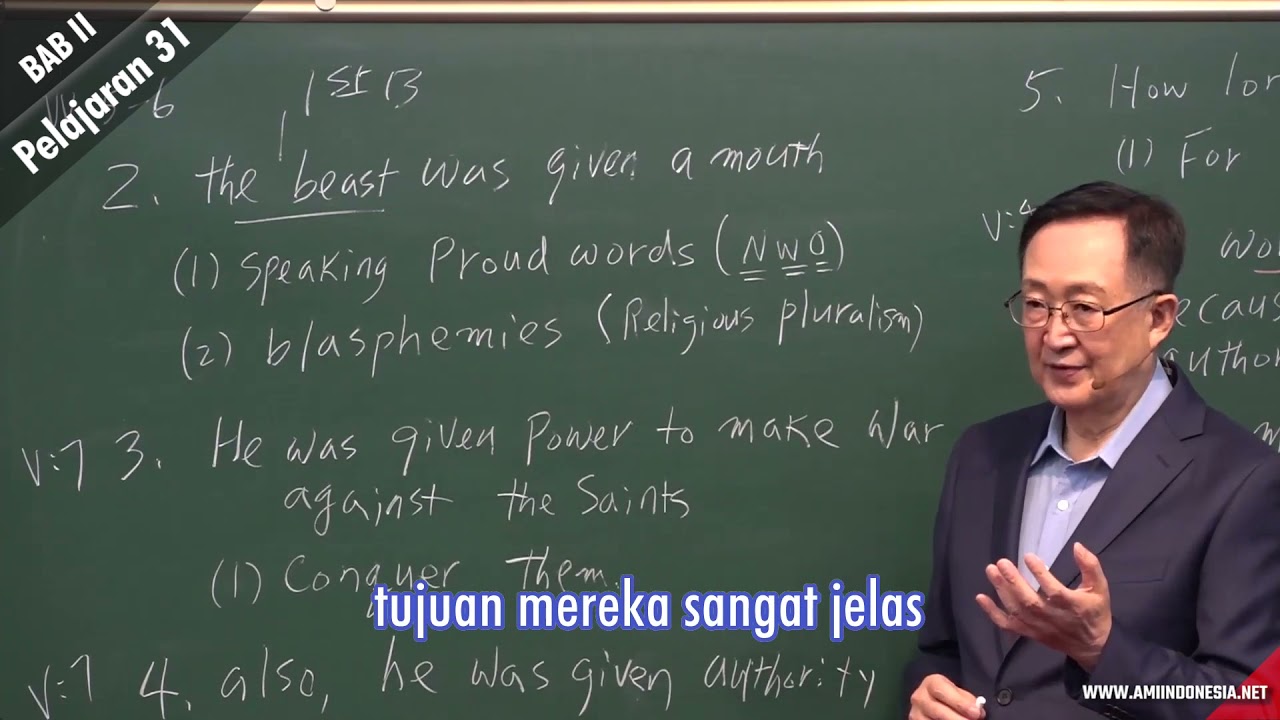 BAB II
Pelajaran 31
1st B
2. the beast was given a mouth
(1) Speaking Proud words (NWO)
(2) blasphemies (Religious pluralism)
v:7 3. He was given Power to make war
against the Saints
(1) Conquer them.
v:7 4. also, he was given authority
5. How
(1) For
v:4
tujuan mereka sangat jelas
WWW.AMIINDONESIA.NET